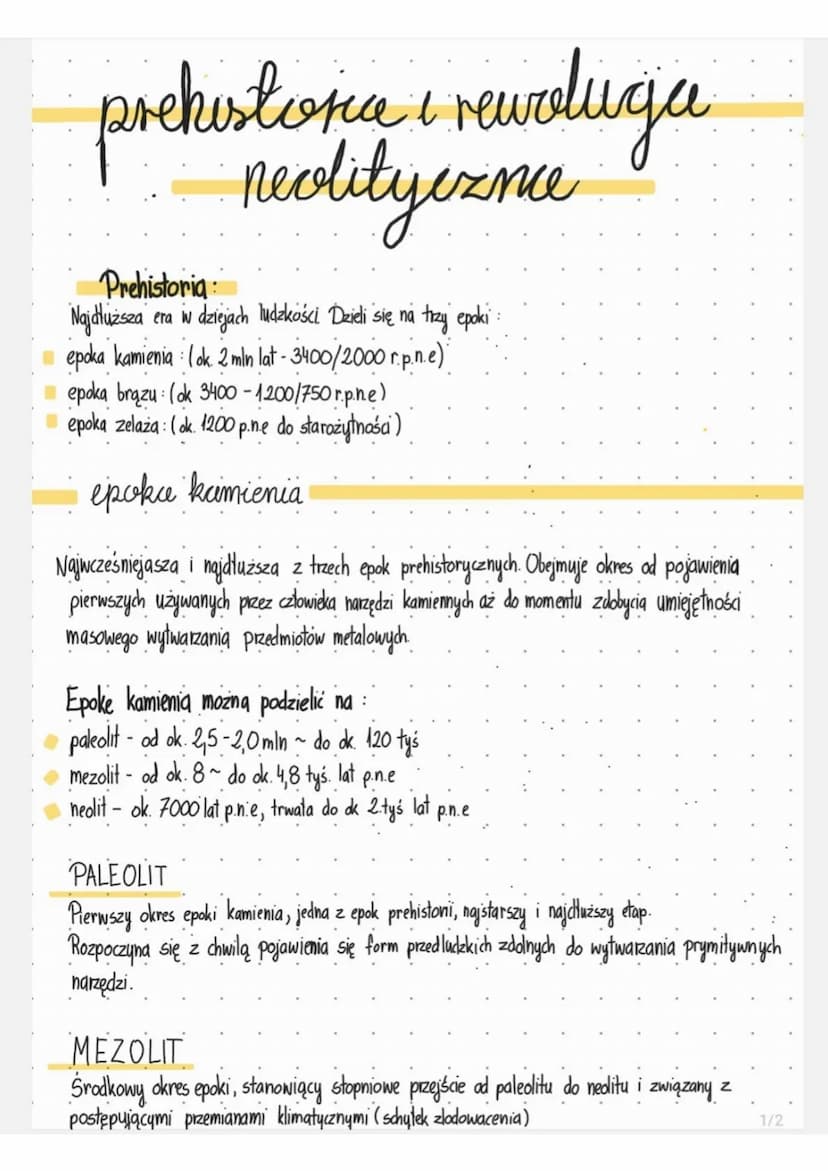 prehistoria i rewolucja
neolityczna
Prehistoria:
Najdłuższa era w dziejach ludzkości. Dzieli się na trzy epoki:
epoka kamienia: (ok. 2 mln lat - 3400/2000 r.p.n.e)
epoka brązu: (ok 3400 - 1200/750 r.p.n.e)
epoka żelaza: (ok. 1200 p.n.e do starożytności)
epoka kamienia
Najwcześniejasza i najdłuższa z trzech epok prehistorycznych. Obejmuje okres od pojawienia
pierwszych używanych przez człowieka narzędzi kamiennych aż do momentu zdobycia umiejętności
masowego wytwarzania przedmiotów metalowych.
Epokę kamienia można podzielić na:
paleolit - od ok. 2,5-2,0 mln ~ do ok. 120 tyś
mezolit - od ok. 8 ~ do ok. 4,8 tyś. lat p.n.e
neolit - ok. 7000 lat p.n.e, trwała do ok 2 tyś lat p.n.e
PALEOLIT
Pierwszy okres epoki kamienia, jedna z epok prehistorii, najstarszy i najdłuższy etap.
Rozpoczyna się z chwilą pojawienia się form przedludzkich zdolnych do wytwarzania prymitywnych
narzędzi.
MEZOLIT
Środkowy okres epoki, stanowiący stopniowe przejście od paleolitu do neolitu i związany z
postępującymi przemianami klimatycznymi (schyłek zlodowacenia)
1/2